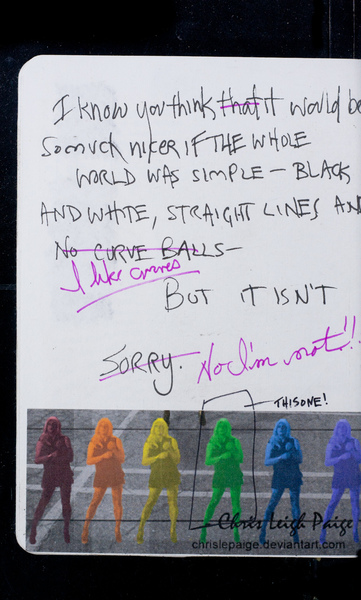 I know you think that it would be
so much nicer IF THE WHOLE
WORLD WAS SIMPLE - BLACK
AND WHITE, STRAIGHT LINES AND
NO CURVE BALLS-
I like curves
BUT IT ISN'T
SORRY. No I'm not!!
THIS ONE!
Chris Leigh Paige
chrislepaige.deviantart.com